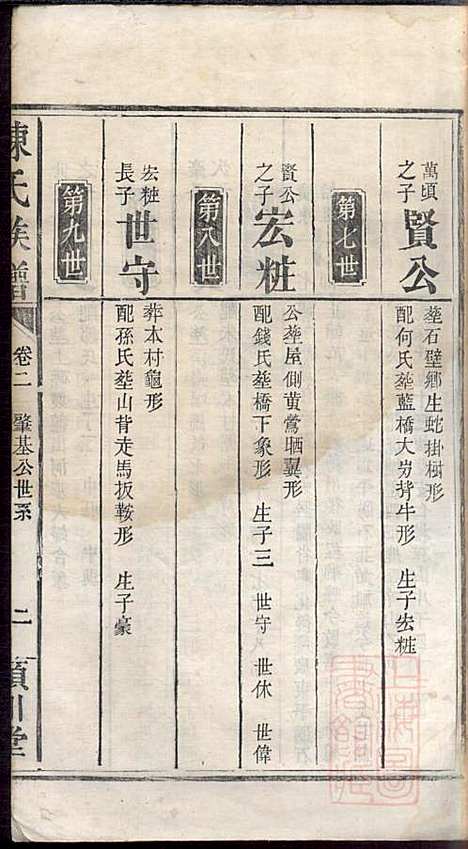 萬頃
之子
賢公
塟石壁鄉生蛇掛樹形
配何氏塟藍橋大岃犄牛形 生子宏粧
第七世
賢公
之子
宏粧
公塟屋側黄鶯晒翼形
配錢氏塟橋下象形 生子三 世守 世休 世偉
第八世
宏粧
長子
世守
葬本村龜形
配孫氏塟山背走馬扳鞍形 生子豪
第九世
陳氏族譜 卷二 肇基公世系 二 潁川堂